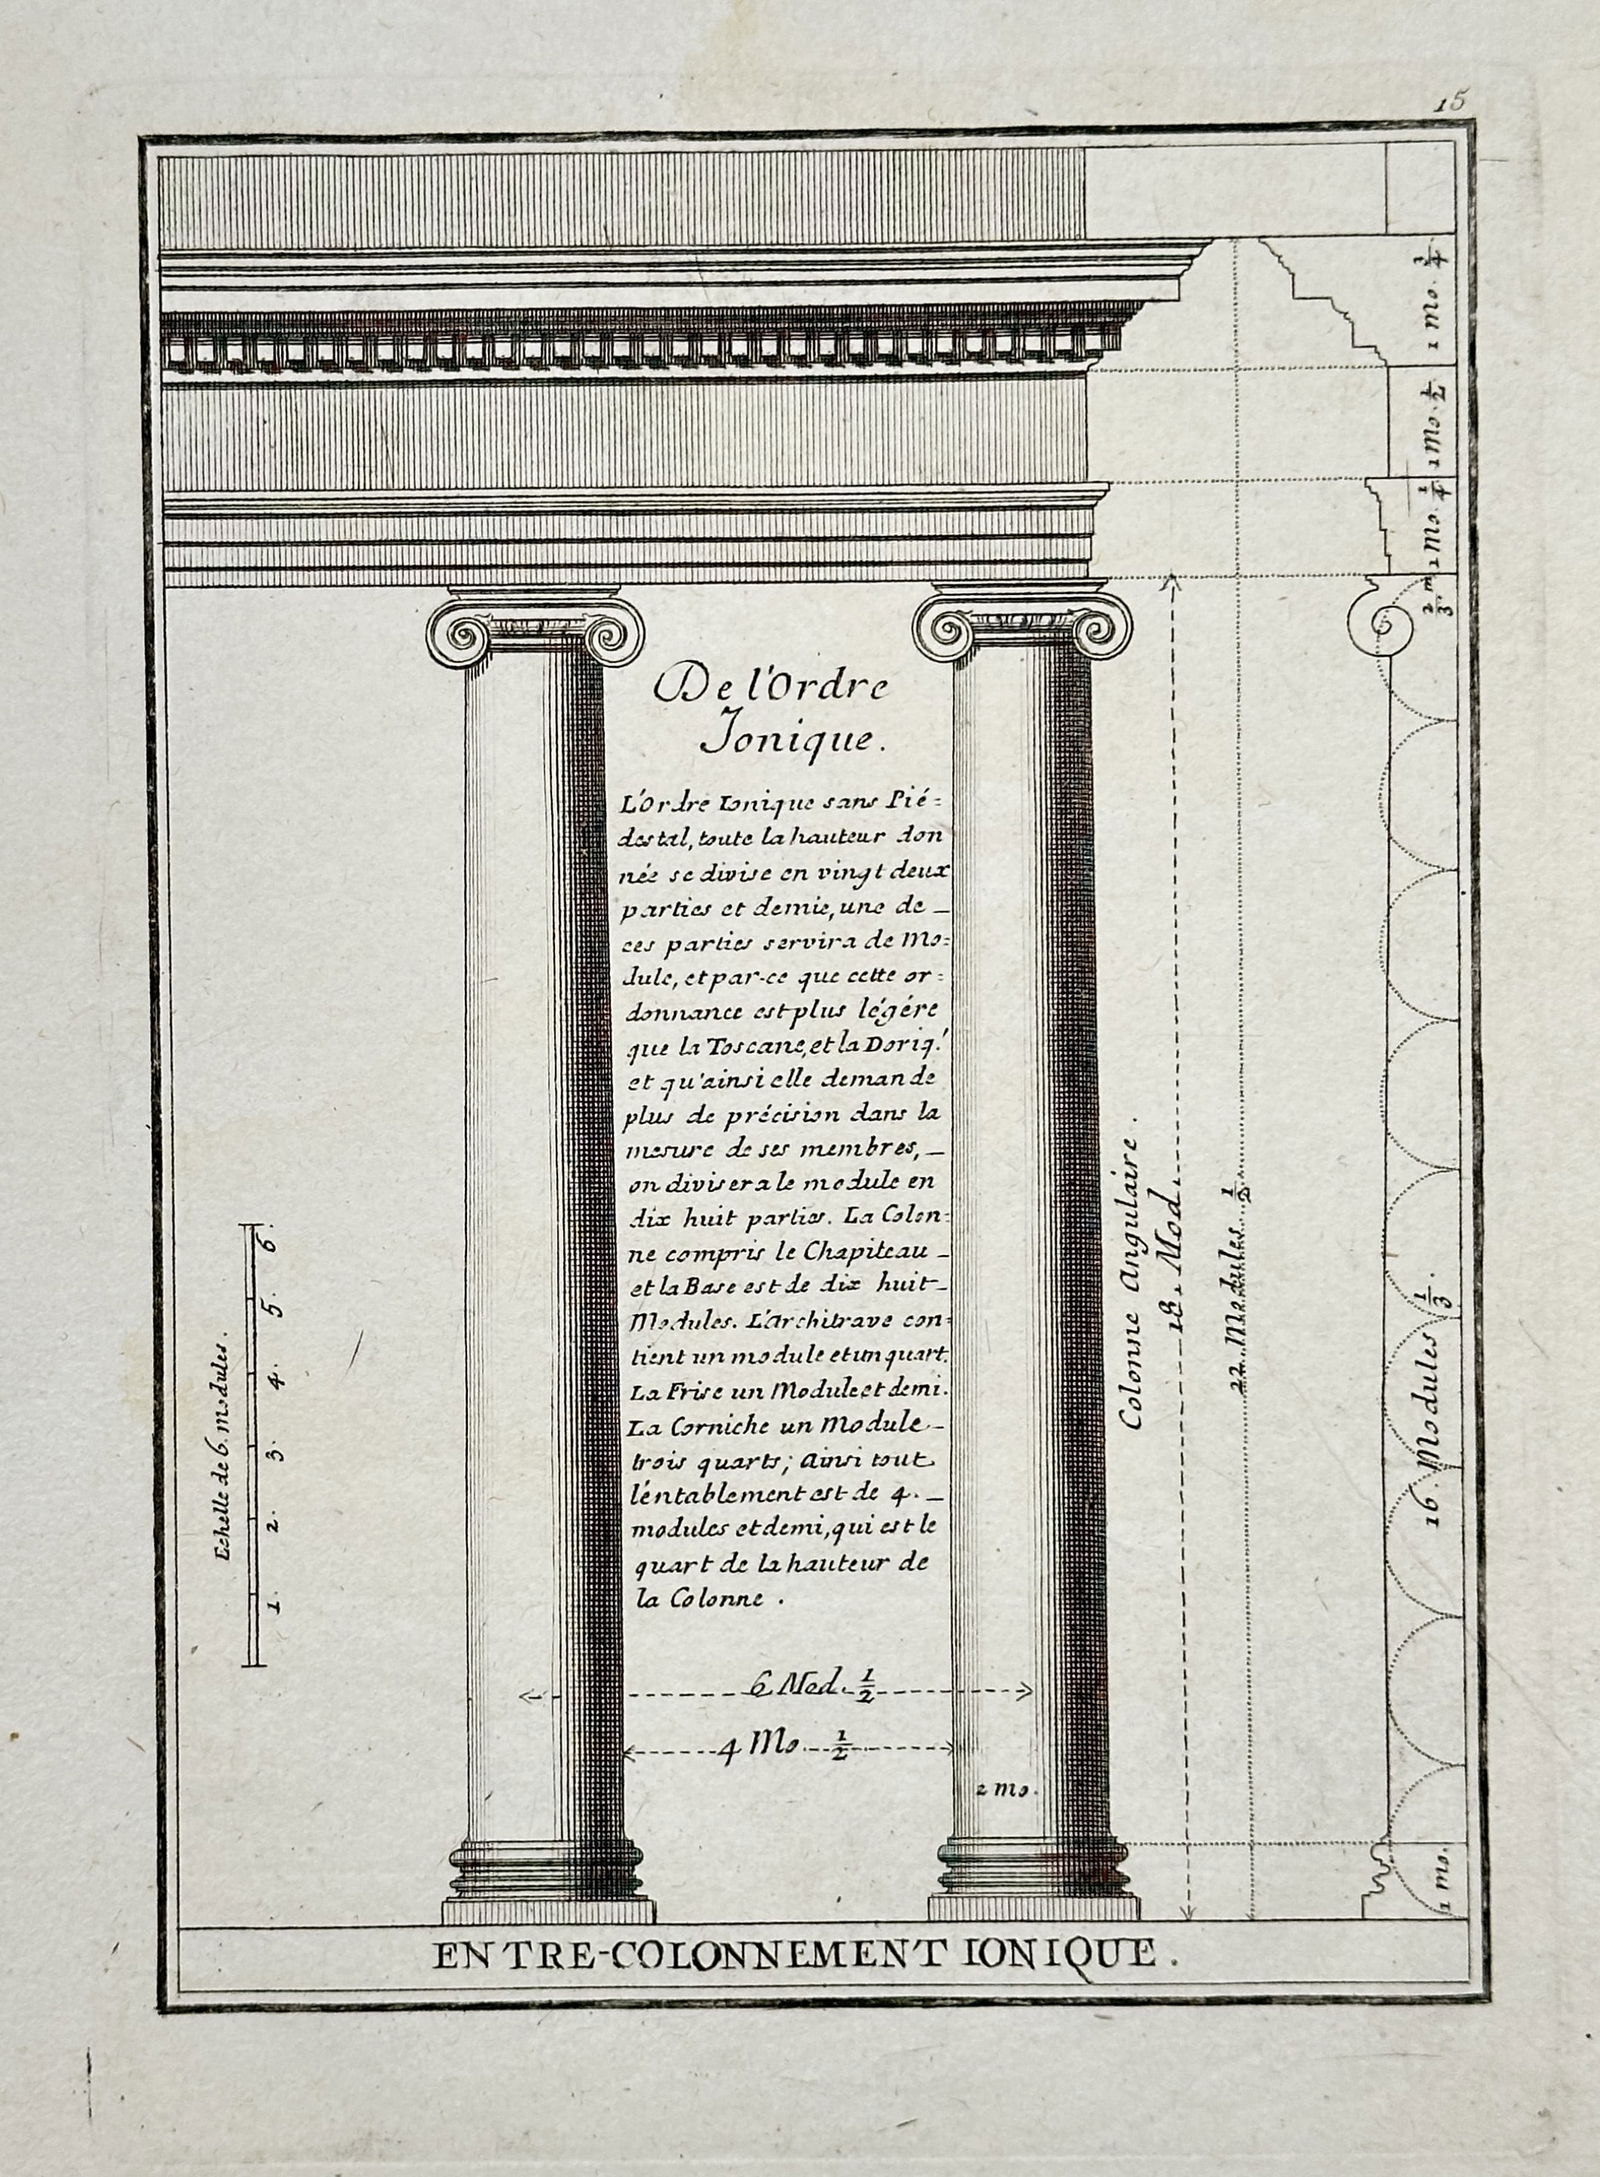 15
De l'Ordre
Jonique.
L'Ordre Ionique sans Pié=
destal, toute la hauteur don
née se divise en vingt deux
parties et demie, une de _
ces parties servira de Mo=
dule, et par-ce que cette or=
donnance est plus légére
que la Toscane, et la Doriq.'
et qu'ainsi elle demande
plus de précision dans la
mesure de ses membres, _
on divisera le module en
dix huit parties. La Colon=
ne compris le Chapiteau _
et la Base est de dix huit _
Modules. L'Architrave con=
tient un module et un quart.
La Frise un Module et demi.
La Corniche un Module _
trois quarts; Ainsi tout
léntablement est de 4. _
modules et demi, qui est le
quart de la hauteur de
la Colonne.
6 Mod. 1/2
4 Mo. 1/2
2 mo.
Echelle de 6. modules.
1. 2. 3. 4. 5. 6.
Colonne Angulaire.
18. Mod.
22 Modules 1/2
1 mo. 3/4
1 mo. 1/2
1 mo. 1/4
2/3 m
16. Modules 1/3.
1 mo.
ENTRE-COLONNEMENT IONIQUE.